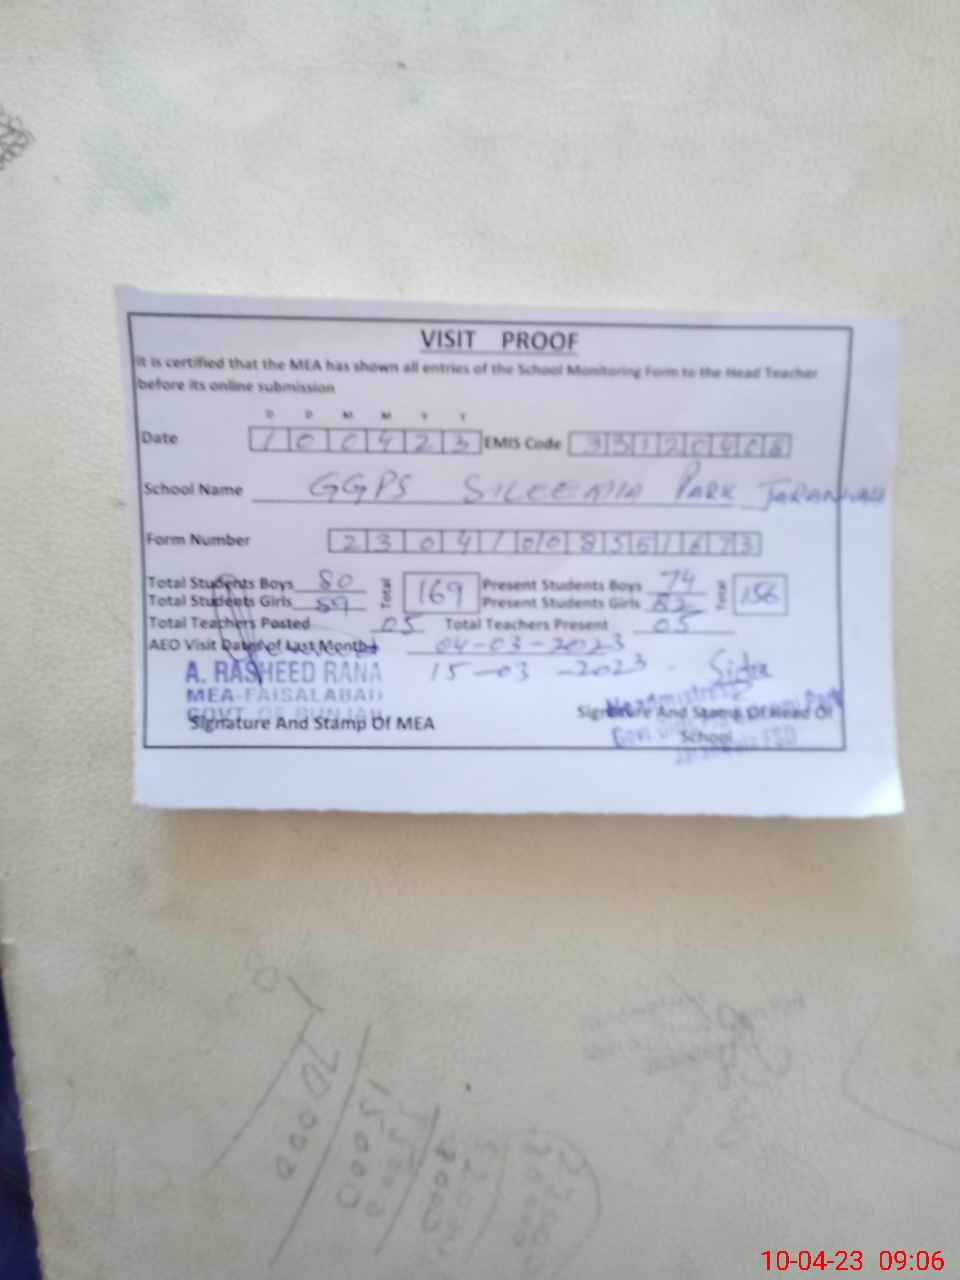 VISIT PROOF
It is certified that the MEA has shown all entries of the School Monitoring Form to the Head Teacher
before its online submission
D D M M Y Y
Date 1 0 0 4 2 3 EMIS Code 3 3 1 2 0 4 0 6
School Name GGPS PARK
Form Number 2 3 0 4 1 0 0 8 5 5 1 6 7 3
Total Students Boys 80 Total 169 Present Students Boys 74 Total 156
Total Students Girls 89 Present Students Girls 82
Total Teachers Posted 05 Total Teachers Present 05
AEO Visit Date of Last Month 04-03-2023
A. RASHEED RANA 15-03-2023 Sidra
MEA-FAISALABAD
GOVT. OF PUNJAB
Signature And Stamp Of MEA Signature And Stamp Of Head Of
School
70000
15000
10-04-23 09:06